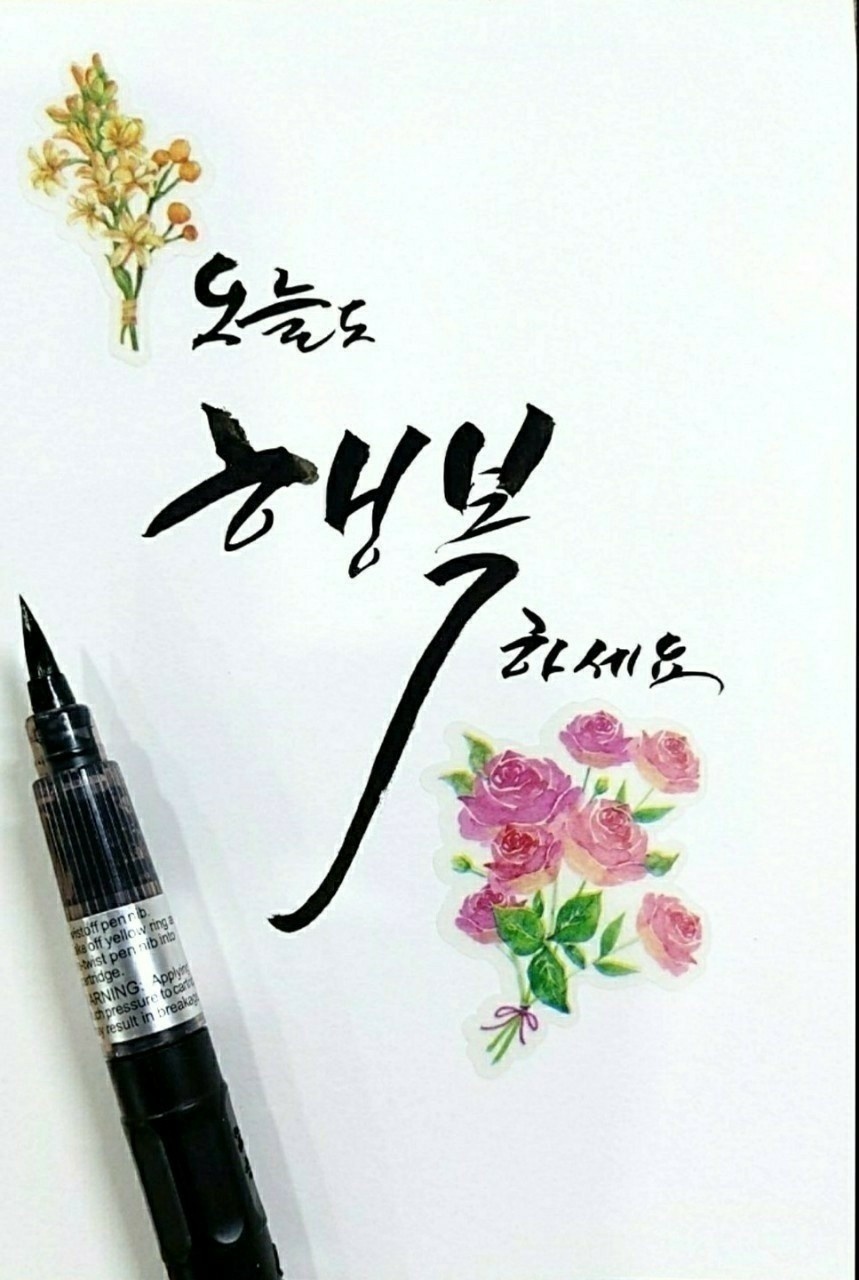 오늘도
행복
하세요
twist off pen nib.
take off yellow ring a
-twist pen nib into
cartridge.
WARNING: Applying
pressure to cartri
may result in breakag